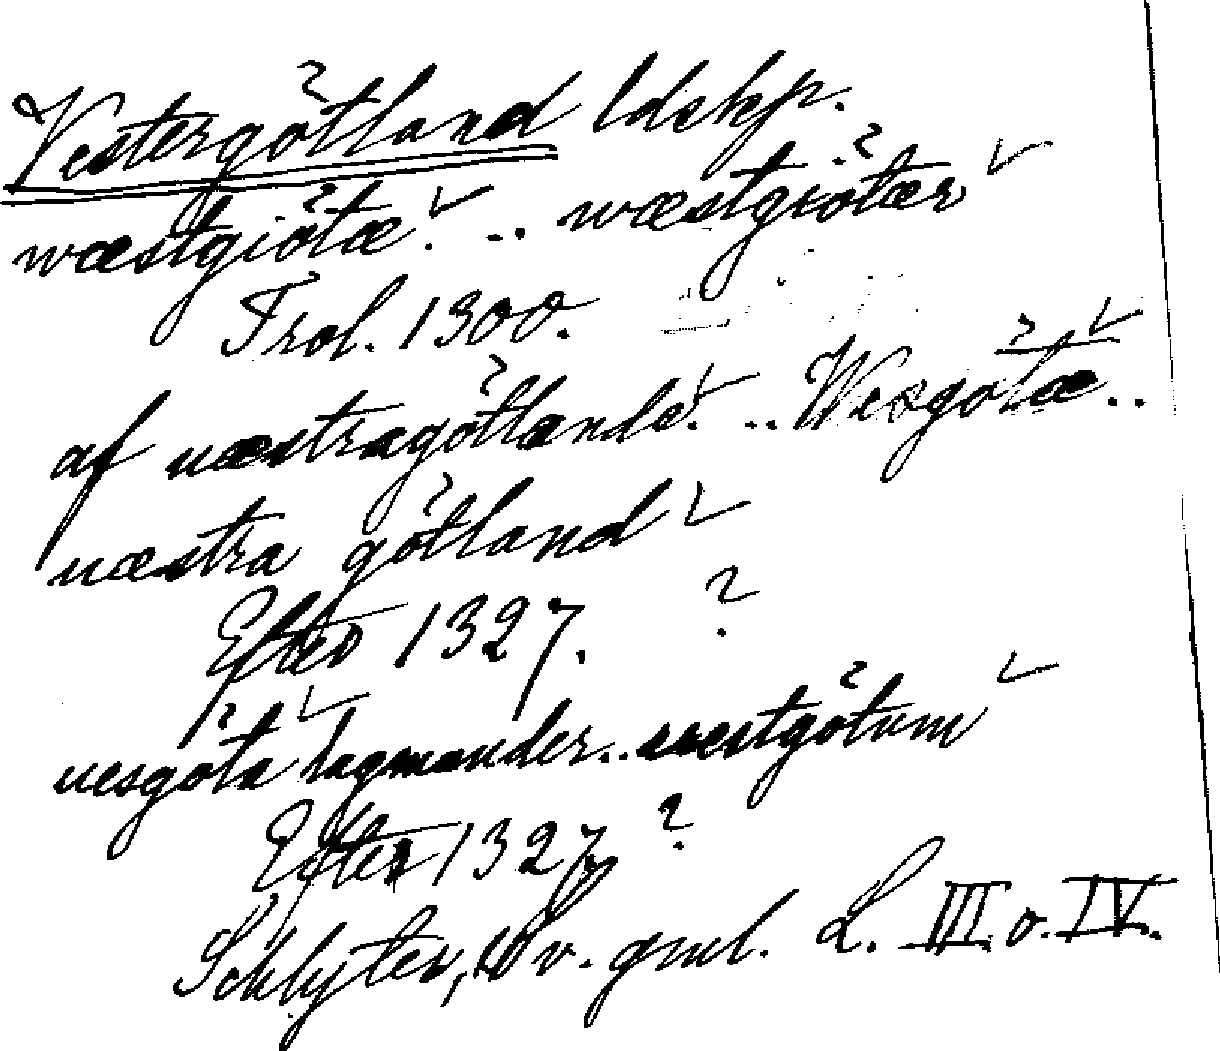 Vestergötland ldskp.
wæstgiötæ. .. wæstgiötær
Trol. 1300.
af uæstragötlande. .. Wesgötæ..
uæstra götland
Efter 1327. ?
uesgöta lagmander.. uestgötum
Efter 1327 ?
Schlyter, Sv. gml. L. III o. IV.